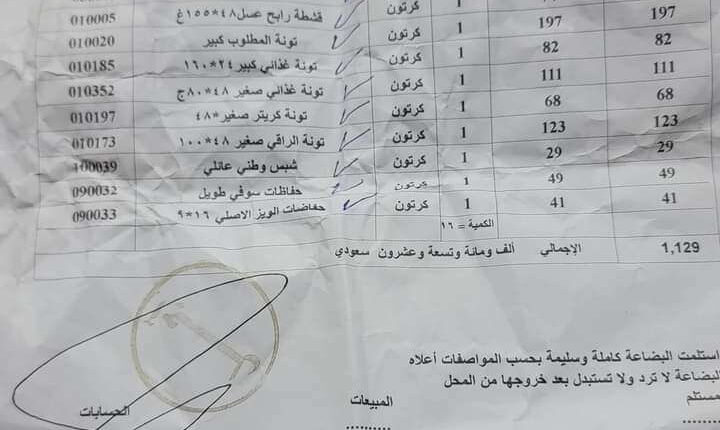 010005 قشطة رابح عسل ٤٨*١٥٥غ كرتون 1 197 197
010020 تونة المطلوب كبير كرتون 1 82 82
010185 تونة غذائي كبير ٢٤*١٦٠ كرتون 1 111 111
010352 تونة غذائي صغير ٤٨*٨٠ج كرتون 1 68 68
010197 تونة كريتر صغير*٤٨ كرتون 1 123 123
010173 تونة الراقي صغير ٤٨*١٠٠ كرتون 1 29 29
100039 شبس وطني عائلي كرتون 1 49 49
090032 حفاظات سوفي طويل كرتون 1 41 41
090033 حفاضات الويز الاصلي ١٦*٩ كرتون 1
الكمية = ١٦
1,129 الإجمالي ألف ومائة وتسعة وعشرون سعودي
استلمت البضاعة كاملة وسليمة بحسب المواصفات أعلاه
البضاعة لا ترد ولا تستبدل بعد خروجها من المحل
مستلم المبيعات الحسابات